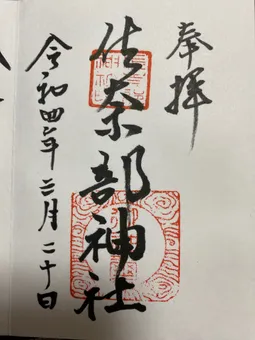 奉拝
佐奈部神社
令和四年三月二十日